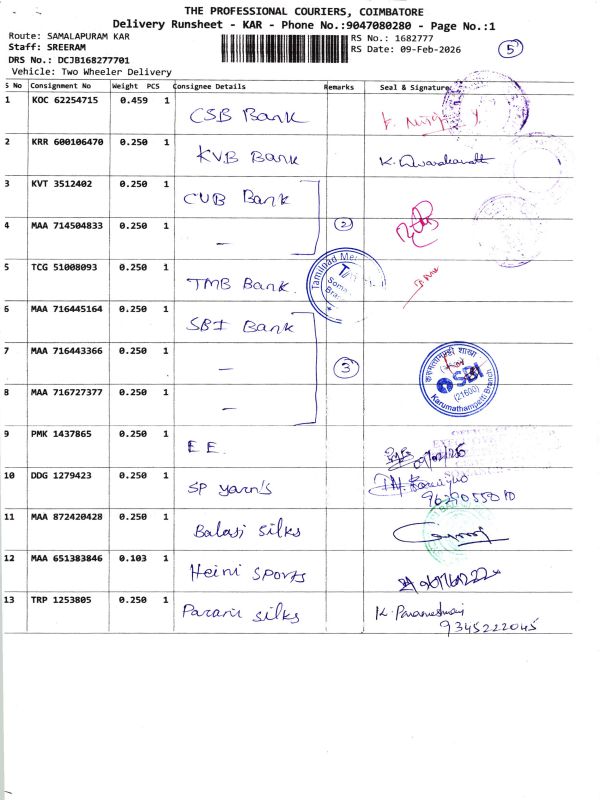 THE PROFESSIONAL COURIERS, COIMBATORE
Delivery Runsheet - KAR - Phone No.:9047080280 - Page No.:1
Route: SAMALAPURAM KAR
RS No.: 1682777
Staff: SREERAM
RS Date: 09-Feb-2026
5
DRS No.: DCJB168277701
Vehicle: Two Wheeler Delivery
S No Consignment No Weight PCS Consignee Details Remarks Seal & Signature
1 KOC 62254715 0.459 1 CSB Bank
2 KRR 600106470 0.250 1 KVB Bank
3 KVT 3512402 0.250 1 CUB Bank
4 MAA 714504833 0.250 1 — 2
5 TCG 51008093 0.250 1 TMB Bank.
6 MAA 716445164 0.250 1 SBI Bank
7 MAA 716443366 0.250 1 — 3
8 MAA 716727377 0.250 1 —
SBI
(21600)
Karumathampatti Branch
9 PMK 1437865 0.250 1 E E.
10 DDG 1279423 0.250 1 SP yarn's
11 MAA 872420428 0.250 1 Balaji silks
12 MAA 651383846 0.103 1 Heini sports
13 TRP 1253805 0.250 1 Parani silks K. Parameshwari
9345222045